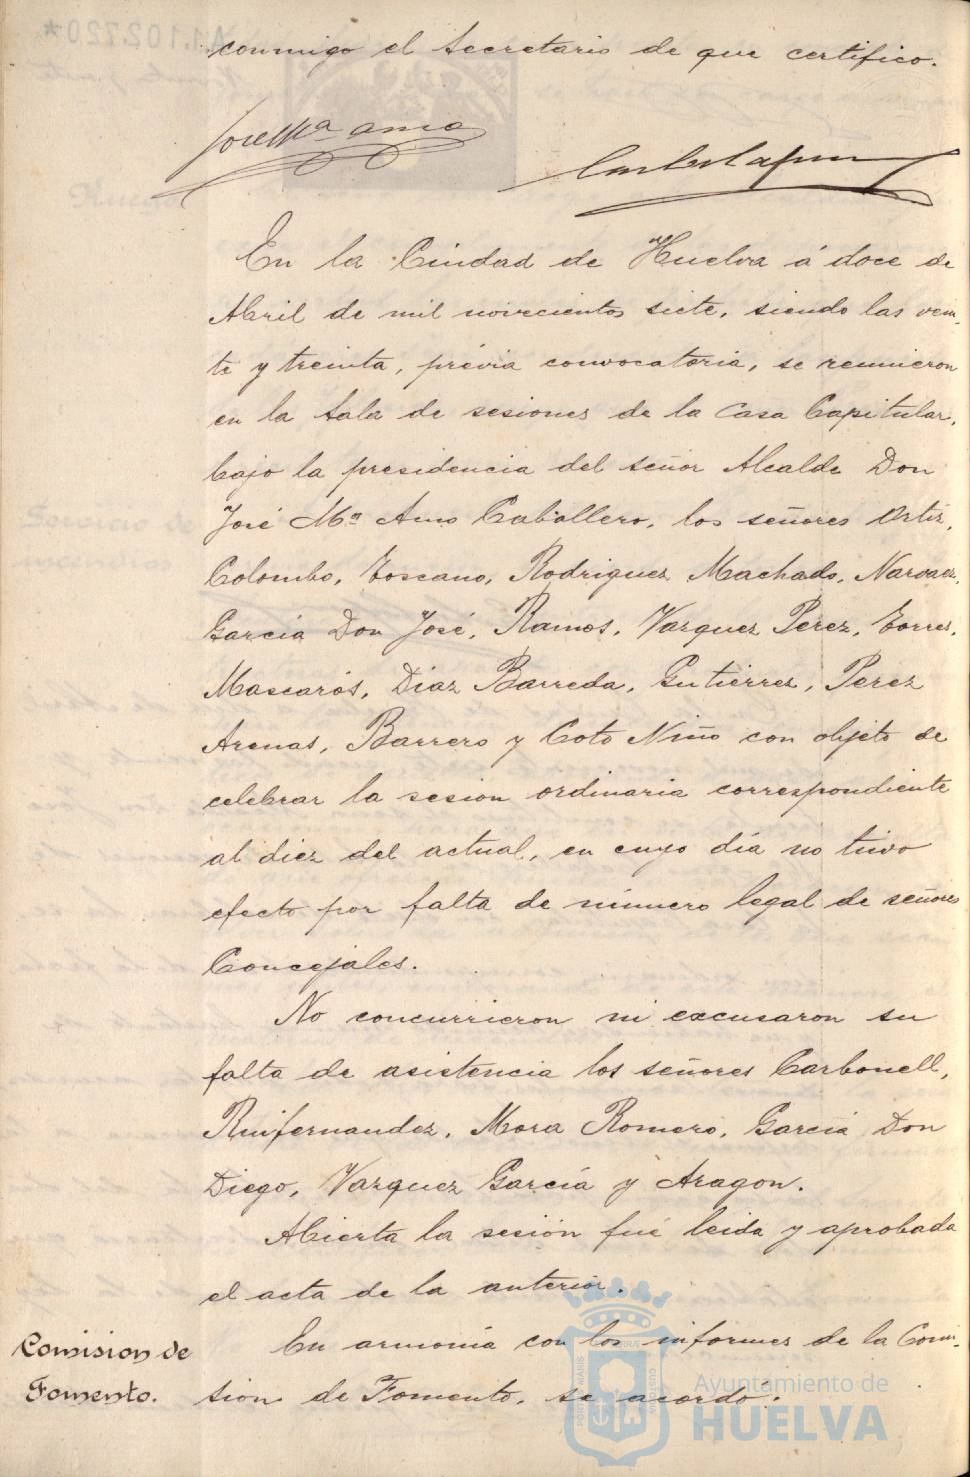 conmigo el Secretario de que certifico.
José Mª Amo
En la Ciudad de Huelva á doce de
Abril de mil novecientos siete, siendo las vein-
te y treinta, prévia convocatoria, se reunieron
en la Sala de sesiones de la Casa Capitular,
bajo la presidencia del señor Alcalde Don
José Mª Amo Caballero, los señores Ortiz,
Colombo, Toscano, Rodriguez Machado, Narvaez,
García Don José, Ramos, Vazquez Perez, Torres,
Mascarós, Diaz Barreda, Gutierrez, Perez
Arenas, Barrero y Coto Niño con objeto de
celebrar la sesion ordinaria correspondiente
al diez del actual, en cuyo día no tuvo
efecto por falta de número legal de señores
Concejales.
No concurrieron ni excusaron su
falta de asistencia los señores Carbonell,
Ruifernandez, Mora Romero, García Don
Diego, Vazquez García y Aragon.
Abierta la sesión fué leida y aprobada
el acta de la anterior.
Comision de
Fomento.
En armonía con los informes de la Comi-
sion de Fomento, se acordo:
Ayuntamiento de
HUELVA